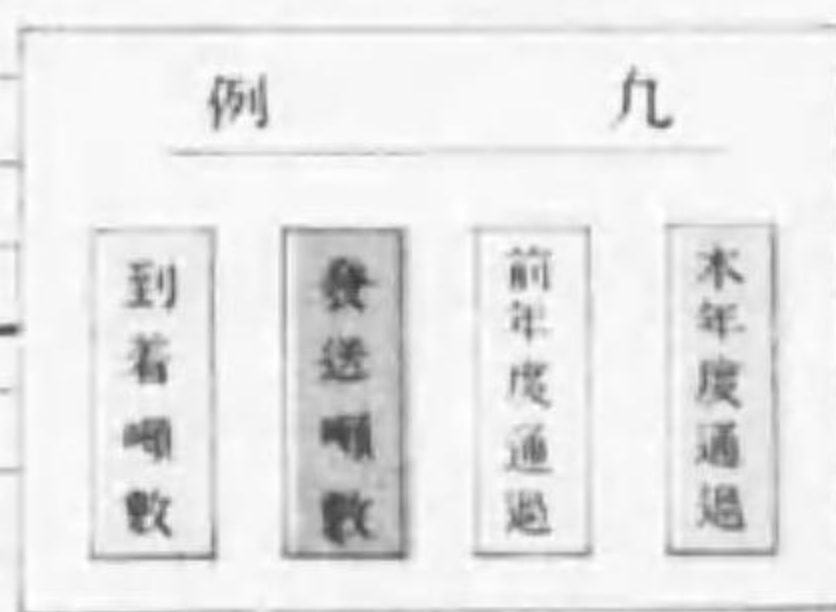 凡例
本年度通過
前年度通過
發送噸數
到着噸數